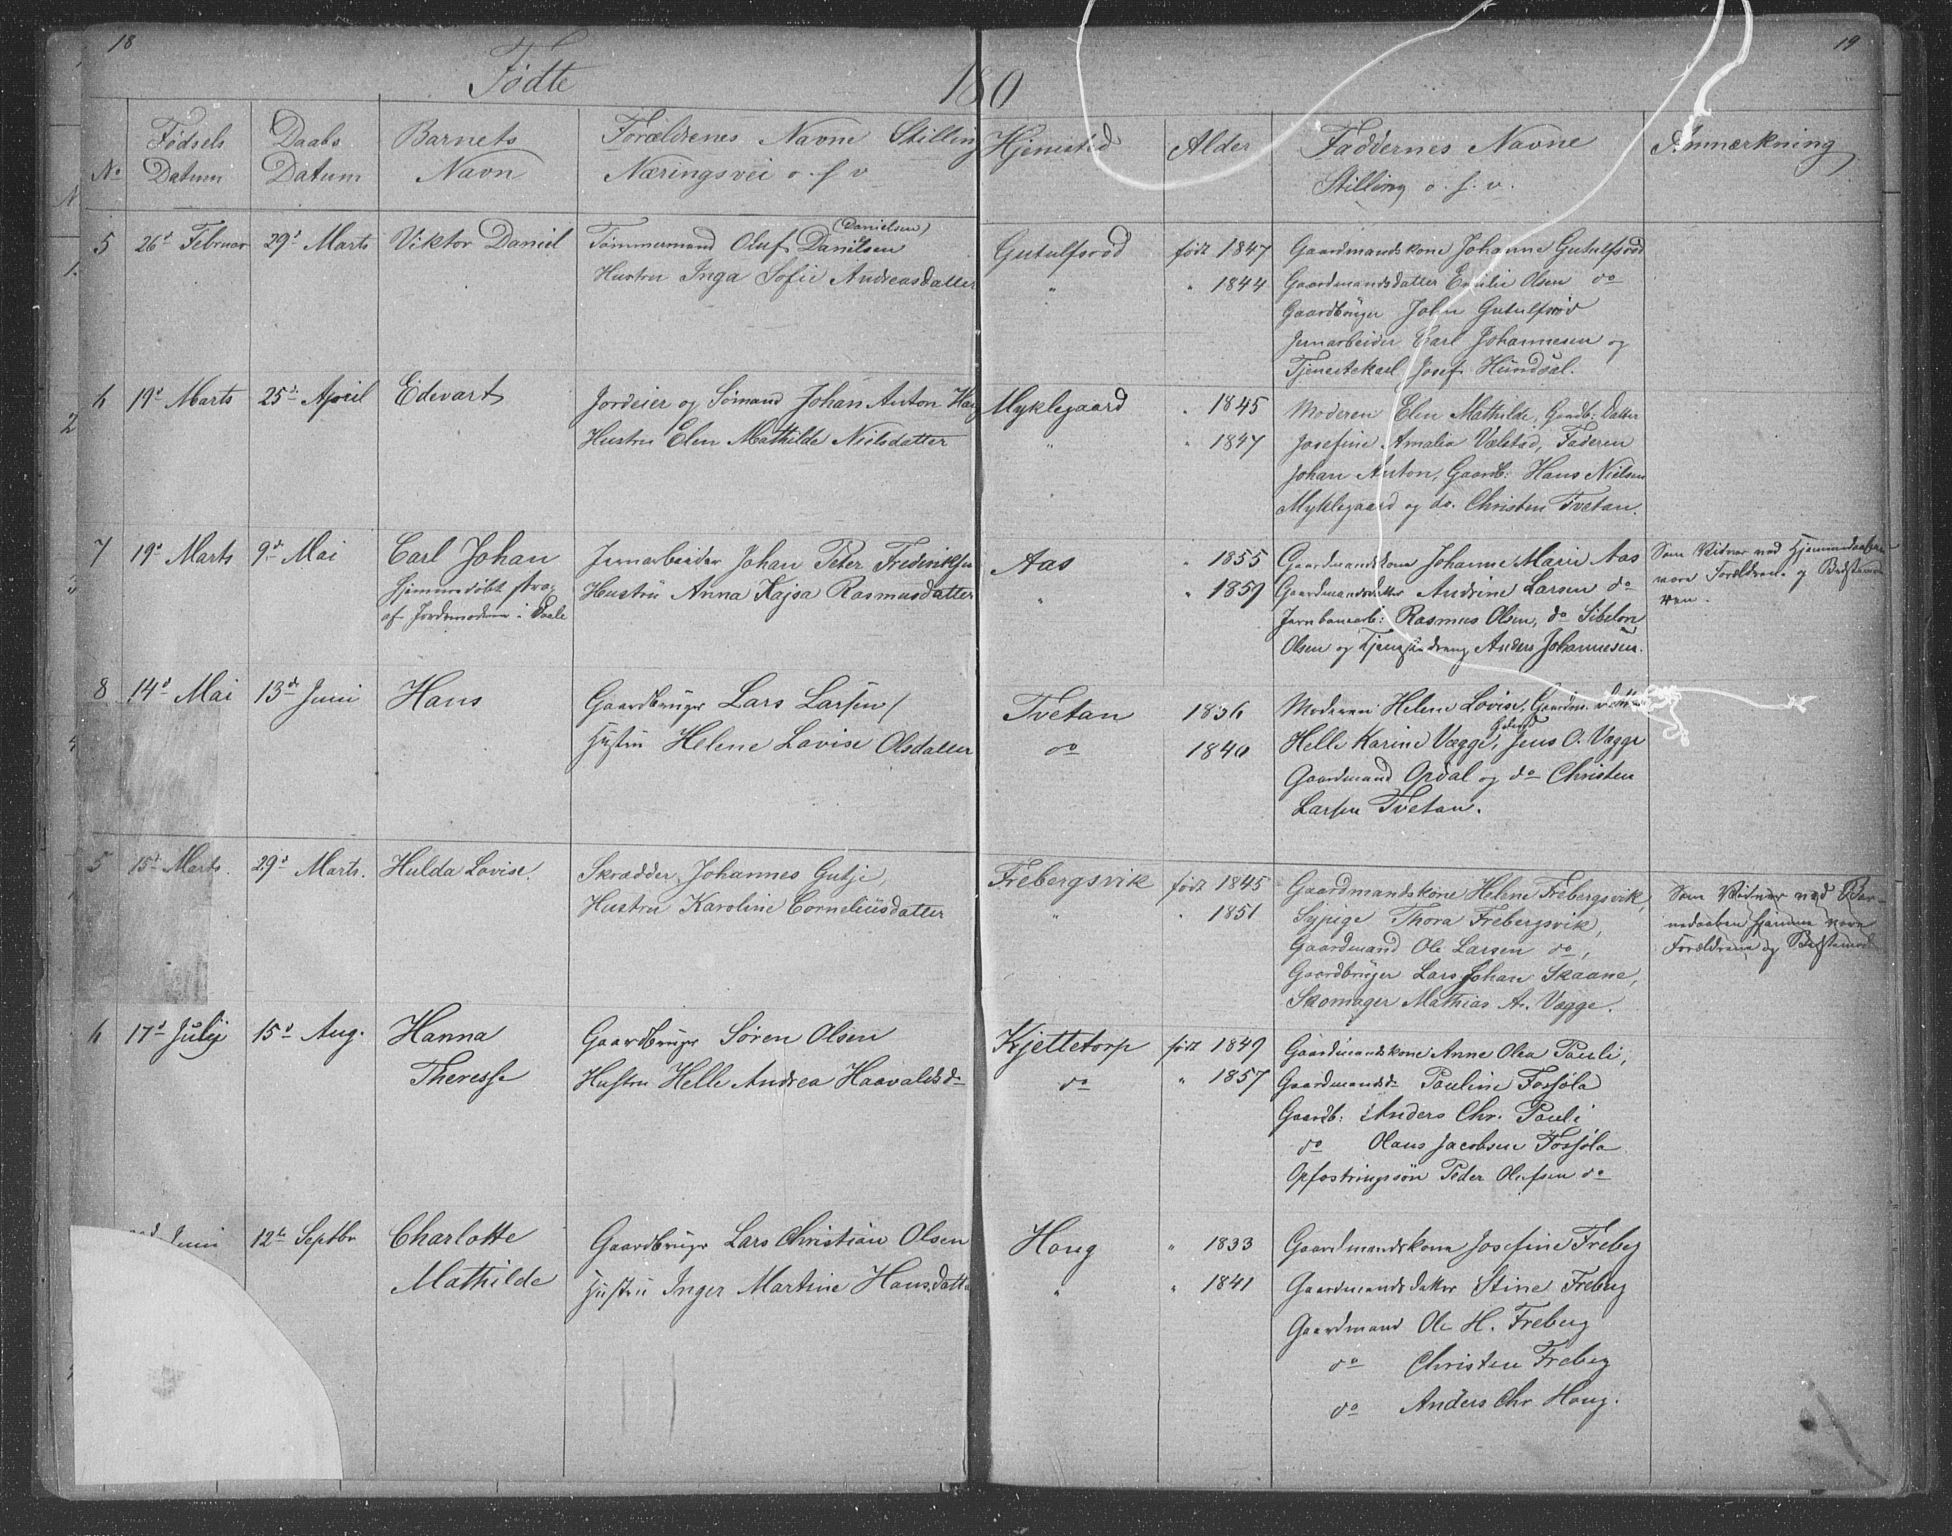 18
19
Fødte
180
No
Fødsels Datum
Daabs Datum
Barnets Navn
Forældrenes Navne Stilling
Næringsvei o. s. v
Hjemsted
Alder
Faddernes Navne
Stilling o. s. v.
Anmærkning
5 26d Februar 29d Marts Viktor Daniel
(Danielsen)
Tømmermand Oluf Danilsen
Hustru Inga Sofie Andreasdatter
Gutulfsrød født 1847
" " 1844
Gaardmandskone Johanne Gutulfsrød
Gaardmandsdatter Emilie Olsen do
Gaardbruger John Gutulfsrød
Jernarbeider Carl Johannesen og
Tjenestekarl Josef Hundsal.
6 19d Marts 25de April Edevart
Jordeier og Sømand Johan Anton
Hustru Elen Mathilde Nielsdatter
Myklegaard " 1845
" " 1847
Moderen Elen Mathilde, Gaardb: Datter
Josefine Amalia Vælstad, Faderen
Johan Anton, Gaardb: Hans Nielsen
Myklegaard og do. Christen Tvetan.
7 19d Marts 9d Mai Carl Johan
hjemmedøbt strax
af Jordemoderen i Daale
Jernarbeider Johan Peter Frederiksen
Hustru Anna Kajsa Rasmusdatter
Aas " 1855
" " 1859
Gaardmandskone Johanne Marie Aas
Gaardmandsdatter Andrine Larsen do
Jernbanearb: Rasmus Olsen, do Sibelon
Olsen og Tjenestedreng Anders Johannesen.
Som Vidner ved Hjemmedaaben
vare Forældrene og Bedstemode
ren.
8 14d Mai 13de Juni Hans
Gaardbruger Lars Larsen
Hustru Helene Lovise Olsdatter
Tvetan 1836
do 1840
Moderen Helene Lovise, Gaardm. Datter
Helle Karine Vægge, Jens O. Vægge
Gaardmand Opdal og do Christen
Larsen Tvetan.
5 15d Marts. 29d Marts. Hulda Lovise.
Skrædder Johannes Gutje,
Hustru Karoline Corneliusdatter
Frebergsvik født 1845
" " 1851
Gaardmandskone Helene Frebergsvik,
Sypige Thora Frebergsvik,
Gaardmand Ole Larsen do,
Gaardbruger Lars Johan Skaane,
Skomager Mathias A. Vægge.
Som Vidner ved Bar-
nedaaben hjemme vare
Forældrene og Bedstemod
6 17d Julij 15d Aug. Hanna
Theresse
Gaardbruger Søren Olsen
Hustru Helle Andrea Haavaldsd
Kjettetorp født 1849
do " 1857
Gaardmandskone Anne Olea Pauli,
Gaardmandsd Pauline Fossøla
Gaardb: Anders Chr. Pauli
do Olaus Jacobsen Fossøla
Opfostringssøn Peder Olufsen do
Juni 12te Septbr Charlotte
Mathilde
Gaardbruger Lars Christian Olsen
Hustru Inger Martine Hansdatter
Houg " 1833
" " 1841
Gaardmandskone Josefine Freberg
Gaardmandsdatter Stine Freberg
Gaardmand Ole H. Freberg
do Christen Freberg
do Anders Chr Houg.